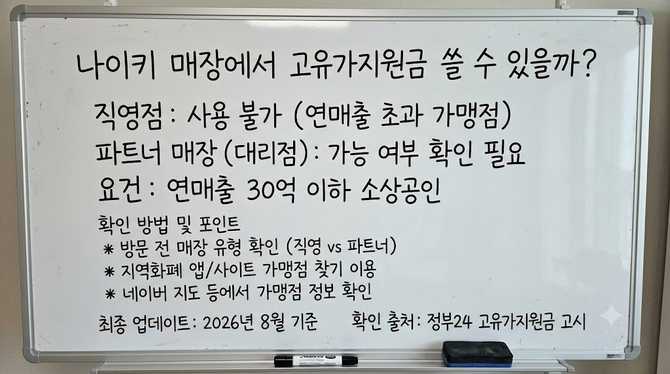 나이키 매장에서 고유가지원금 쓸 수 있을까?
직영점 : 사용 불가 (연매출 초과 가맹점)
파트너 매장 (대리점) : 가능 여부 확인 필요
요건 : 연매출 30억 이하 소상공인
확인 방법 및 포인트
* 방문 전 매장 유형 확인 (직영 vs 파트너)
* 지역화폐 앱/사이트 가맹점 찾기 이용
* 네이버 지도 등에서 가맹점 정보 확인
최종 업데이트: 2026년 8월 기준 확인 출처: 정부24 고유가지원금 고시